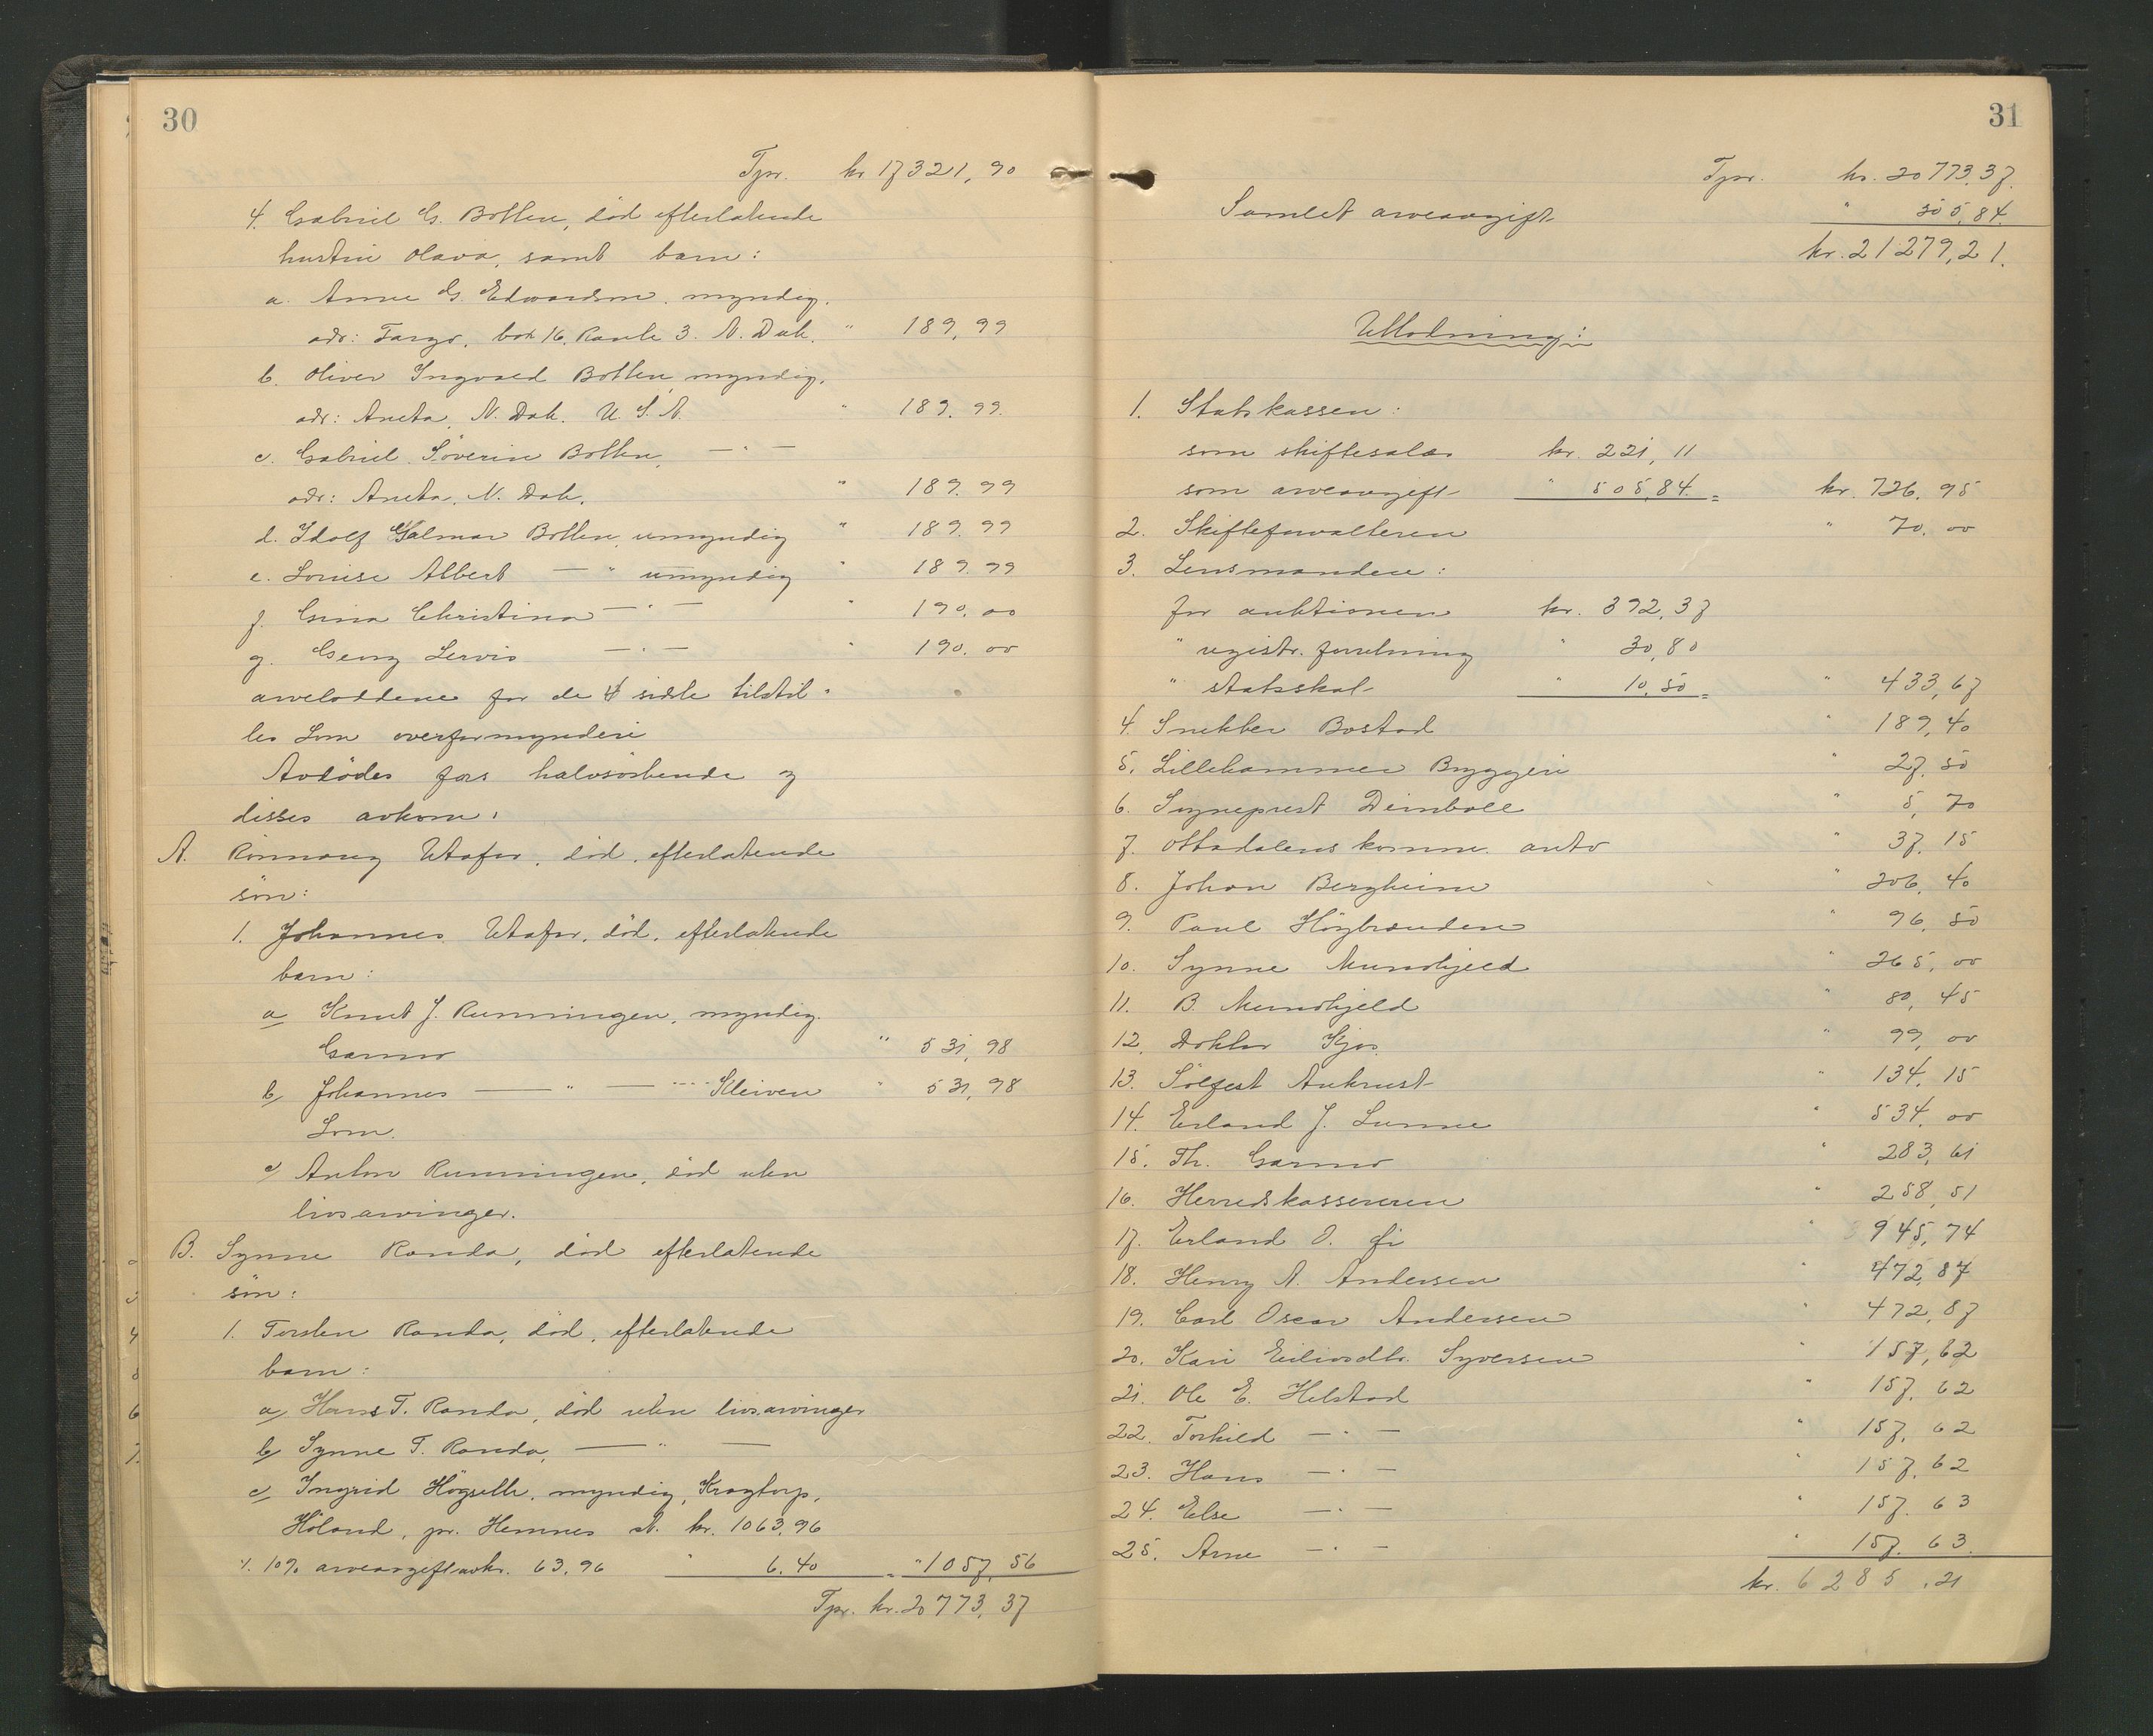 30
Tpr. kr 17321,90
4. Gabriel G. Botten, död efterlatende
hustru Olava, samt barn:
a. Anne G. Edwardson, myndig.
adr: Fargo, box 16, Raute 3. N. Dak. " 189,99
b. Oliver Ingvald Botten, myndig.
adr: Aneta, N. Dak. U. S. A. " 189.99.
c. Gabriel Söverin Botten, — " —
adr: Aneta, N. Dak. " 189.99
d. Idolf Hjalmar Botten, umyndig " 189.99
e. Louise Albert — " umyndig " 189.99
f. Gina Christina — " — " 190.00
g. Georg Lervis — " — " 190.00
arveloddene for de 4 sidste tilstil-
les Lom overformynderi
Avdödes fars halvsöskende og
disses avkom:
A. Rönnaug Utafor, död, efterlatende
sön:
1. Johannes Utafor, död, efterlatende
barn:
a Knut J. Runningen, myndig.
Garmo " 531,98
b, Johannes — " — Kleiven " 531,98
Lom.
c, Anton Runningen, död uten
livsarvinger.
B. Synne Randa, död efterlatende
sön:
1. Torsten Randa, död, efterlatende
barn:
a, Hans T. Randa, död uten livsarvinger
b, Synne T. Randa, — " —
c, Ingrid Högsette, myndig, Krogtorp,
Höland, pr. Hemnes st. kr. 1063,96
÷ 10% arveavgift av kr. 63,96 " 6.40 = " 1057,56
Tpr. kr. 20773,37
31
Tpr. kr. 20773,37.
Samlet arveavgift " 505,84.
kr. 21279,21.
Utlodning:
1. Statskassen:
som skiftesalær kr. 221,11
som arveavgift " 505,84. = kr. 726.95
2. Skifteforvalteren " 70.00
3. Lensmanden:
for auktionen kr. 392,37
" registr. forretning " 30,80
" statsskat " 10,50 = " 433,67
4. Snekker Bostad " 189,40
5. Lillehammer Bryggeri " 27.50
6. Sogneprest Deinboll " 5,70
7. Ottadalens komm. auto " 37.15
8. Johan Bergheim " 206.40
9. Paul Högbranden " 96,50
10. Synne Mundhjeld " 265,00
11. B. Mundhjeld " 80,45
12. Doktor Kjos " 99,00
13. Sölfest Aukrust " 134.15
14. Erland J. Lunne " 534.00
15. Th. Garmo " 283,61
16. Herredskassereren " 258,51
17. Erland O. Fi " 945,74
18. Henry A. Andersen " 472,87
19. Carl Oscar Andersen " 472,87
20. Kari Eilivsdtr. Syversen " 157,62
21. Ole E. Helstad " 157.62
22. Torkild — " — " 157.62
23. Hans — " — " 157.62
24. Else — " — " 157.63
25. Arne — " — " 157.63.
kr. 6285,21